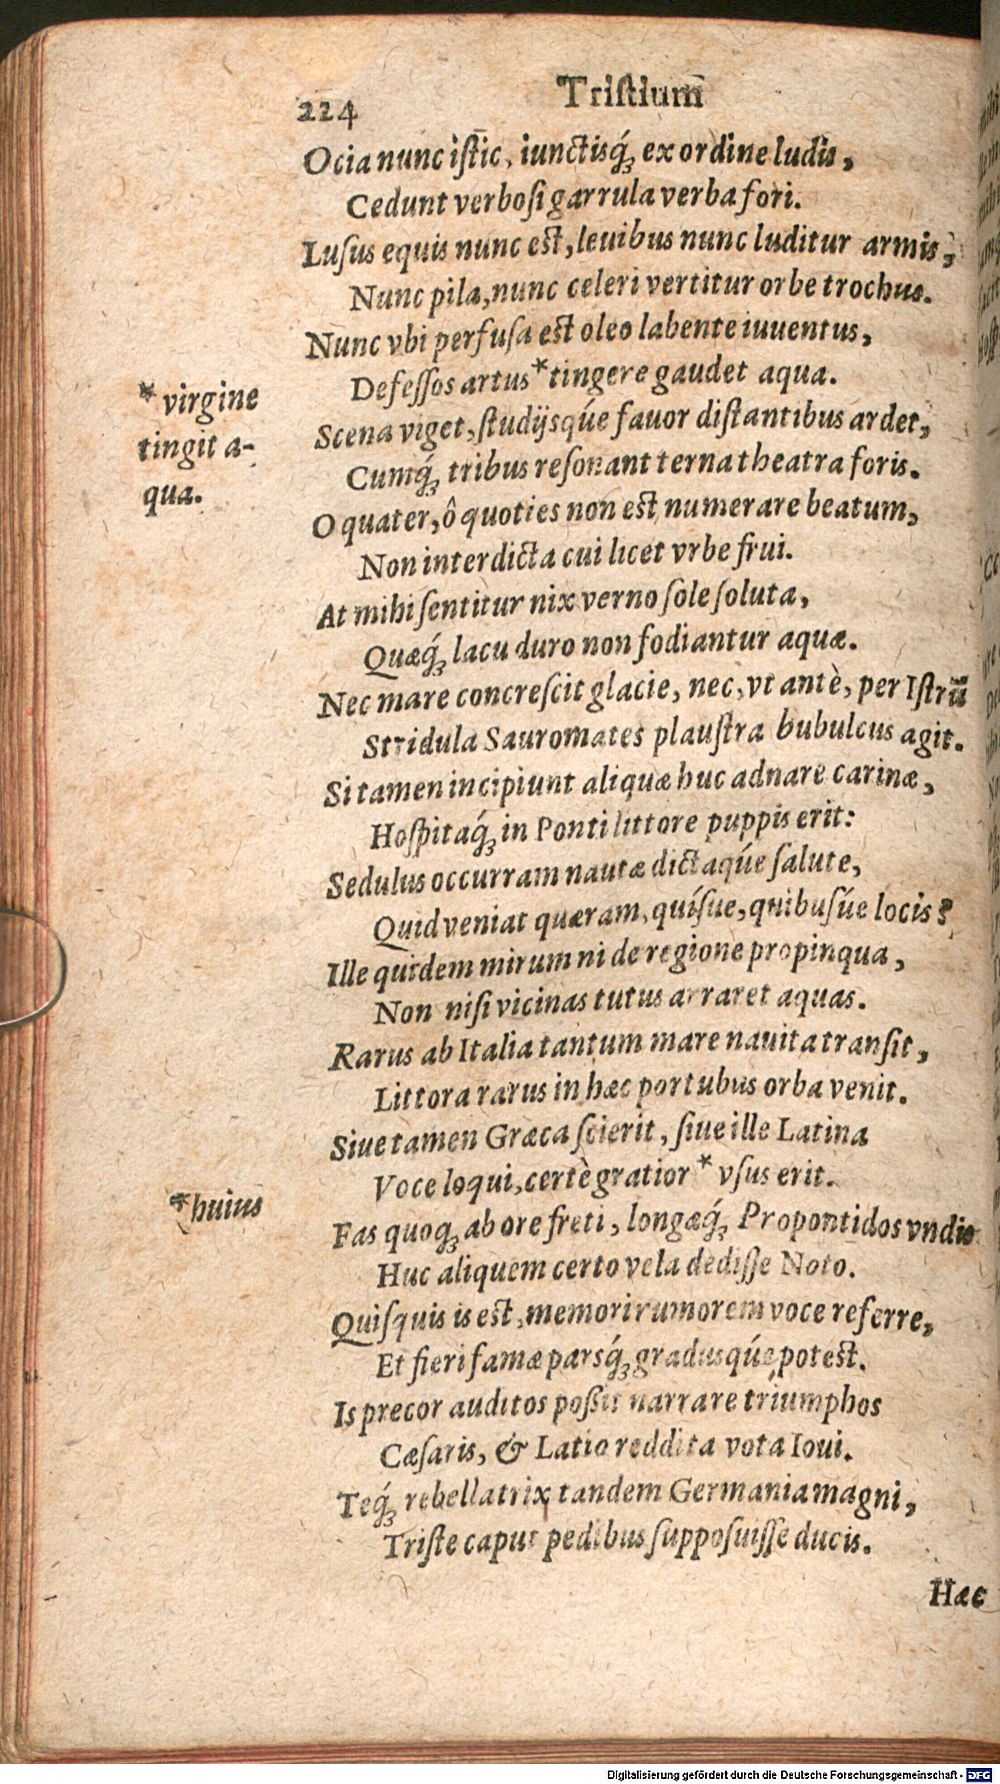 224
Tristium
Ocia nunc istic, iunctisq́; ex ordine ludis,
Cedunt verbosi garrula verba fori.
Lusus equis nunc est, leuibus nunc luditur armis,
Nunc pila, nunc celeri vertitur orbe trochus.
Nunc vbi perfusa est oleo labente iuuentus,
Defessos artus * tingere gaudet aqua.
* virgine
tingit a-
qua.
Scena viget, studijsq́ue fauor distantibus ardet,
Cumq́; tribus resonant terna theatra foris.
O quater, ô quoties non est numerare beatum,
Non interdicta cui licet vrbe frui.
At mihi sentitur nix verno sole soluta,
Quæq́; lacu duro non fodiantur aquæ.
Nec mare concrescit glacie, nec, vt antè, per Istrū
Stridula Sauromates plaustra bubulcus agit.
Si tamen incipiunt aliquæ huc adnare carinæ,
Hospitaq́; in Ponti littore puppis erit:
Sedulus occurram nautæ dictaq́ue salute,
Quid veniat quæram, quísue, quibusúe locis?
Ille quidem mirum ni de regione propinqua,
Non nisi vicinas tutus arraret aquas.
Rarus ab Italia tantum mare nauita transit,
Littora rarus in hæc portubus orba venit.
Siue tamen Græca scierit, siue ille Latina
Voce loqui, certè gratior * vsus erit.
* huius
Fas quoq; ab ore freti, longæq́; Propontidos vndis
Huc aliquem certo vela dedisse Noto.
Quisquis is est, memori rumorem voce referre,
Et fieri famæ parsq́; gradusq́ue potest.
Is precor auditos possit narrare triumphos
Cæsaris, & Latio reddita vota Ioui.
Teq́; rebellatrix tandem Germania magni,
Triste caput pedibus supposuisse ducis.
Hæc
Digitalisierung gefördert durch die Deutsche Forschungsgemeinschaft - DFG